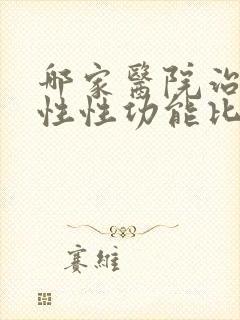 哪家醫院治
性性功能比
賽維